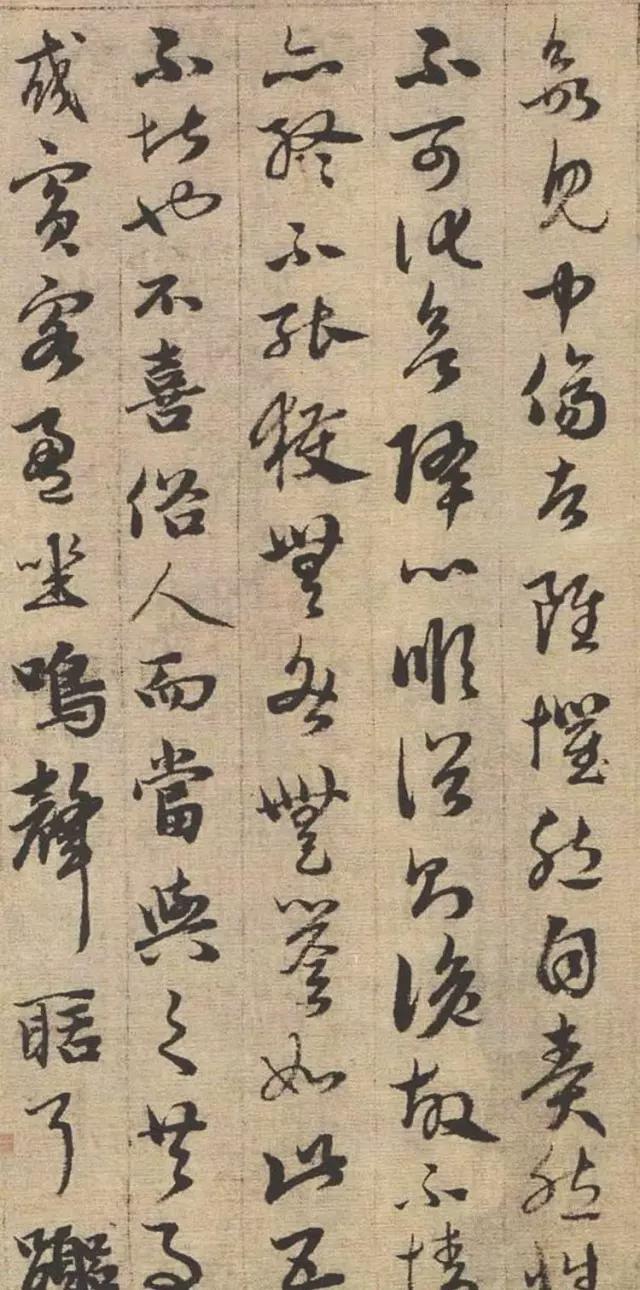 欲見中傷者雖懼然自責然性
不可化欲降心順俗則詭故不情
亦終不能獲無咎無譽如此五
不堪也不喜俗人而當與之共事
或賓客盈坐鳴聲聒耳